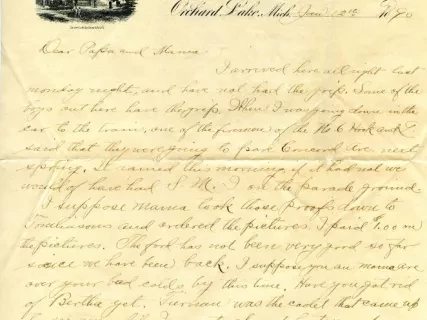 Orchard Lake, Mich. Jan 12th 1890
Dear Papa and Mama -
I arrived here all right last
monday night, and have not had the grip. Some of the
boys out here have the grip. When I was going down in the
car to the train, one of the firemen of the No. 6 Hook and L
said that they were going to pave Concord Ave. next
spring. It rained this morning if it had not we
would of have had S. M. I. on the parade ground.
I suppose Mama took those proofs down to
Tomlinsons and ordered the pictures. I paid $1.00 on
the pictures. The food has not been very good so far
since we have been back. I suppose you an mama are
over your bad colds by this time. Have you got rid
of Bertha yet. was the cadet that came up